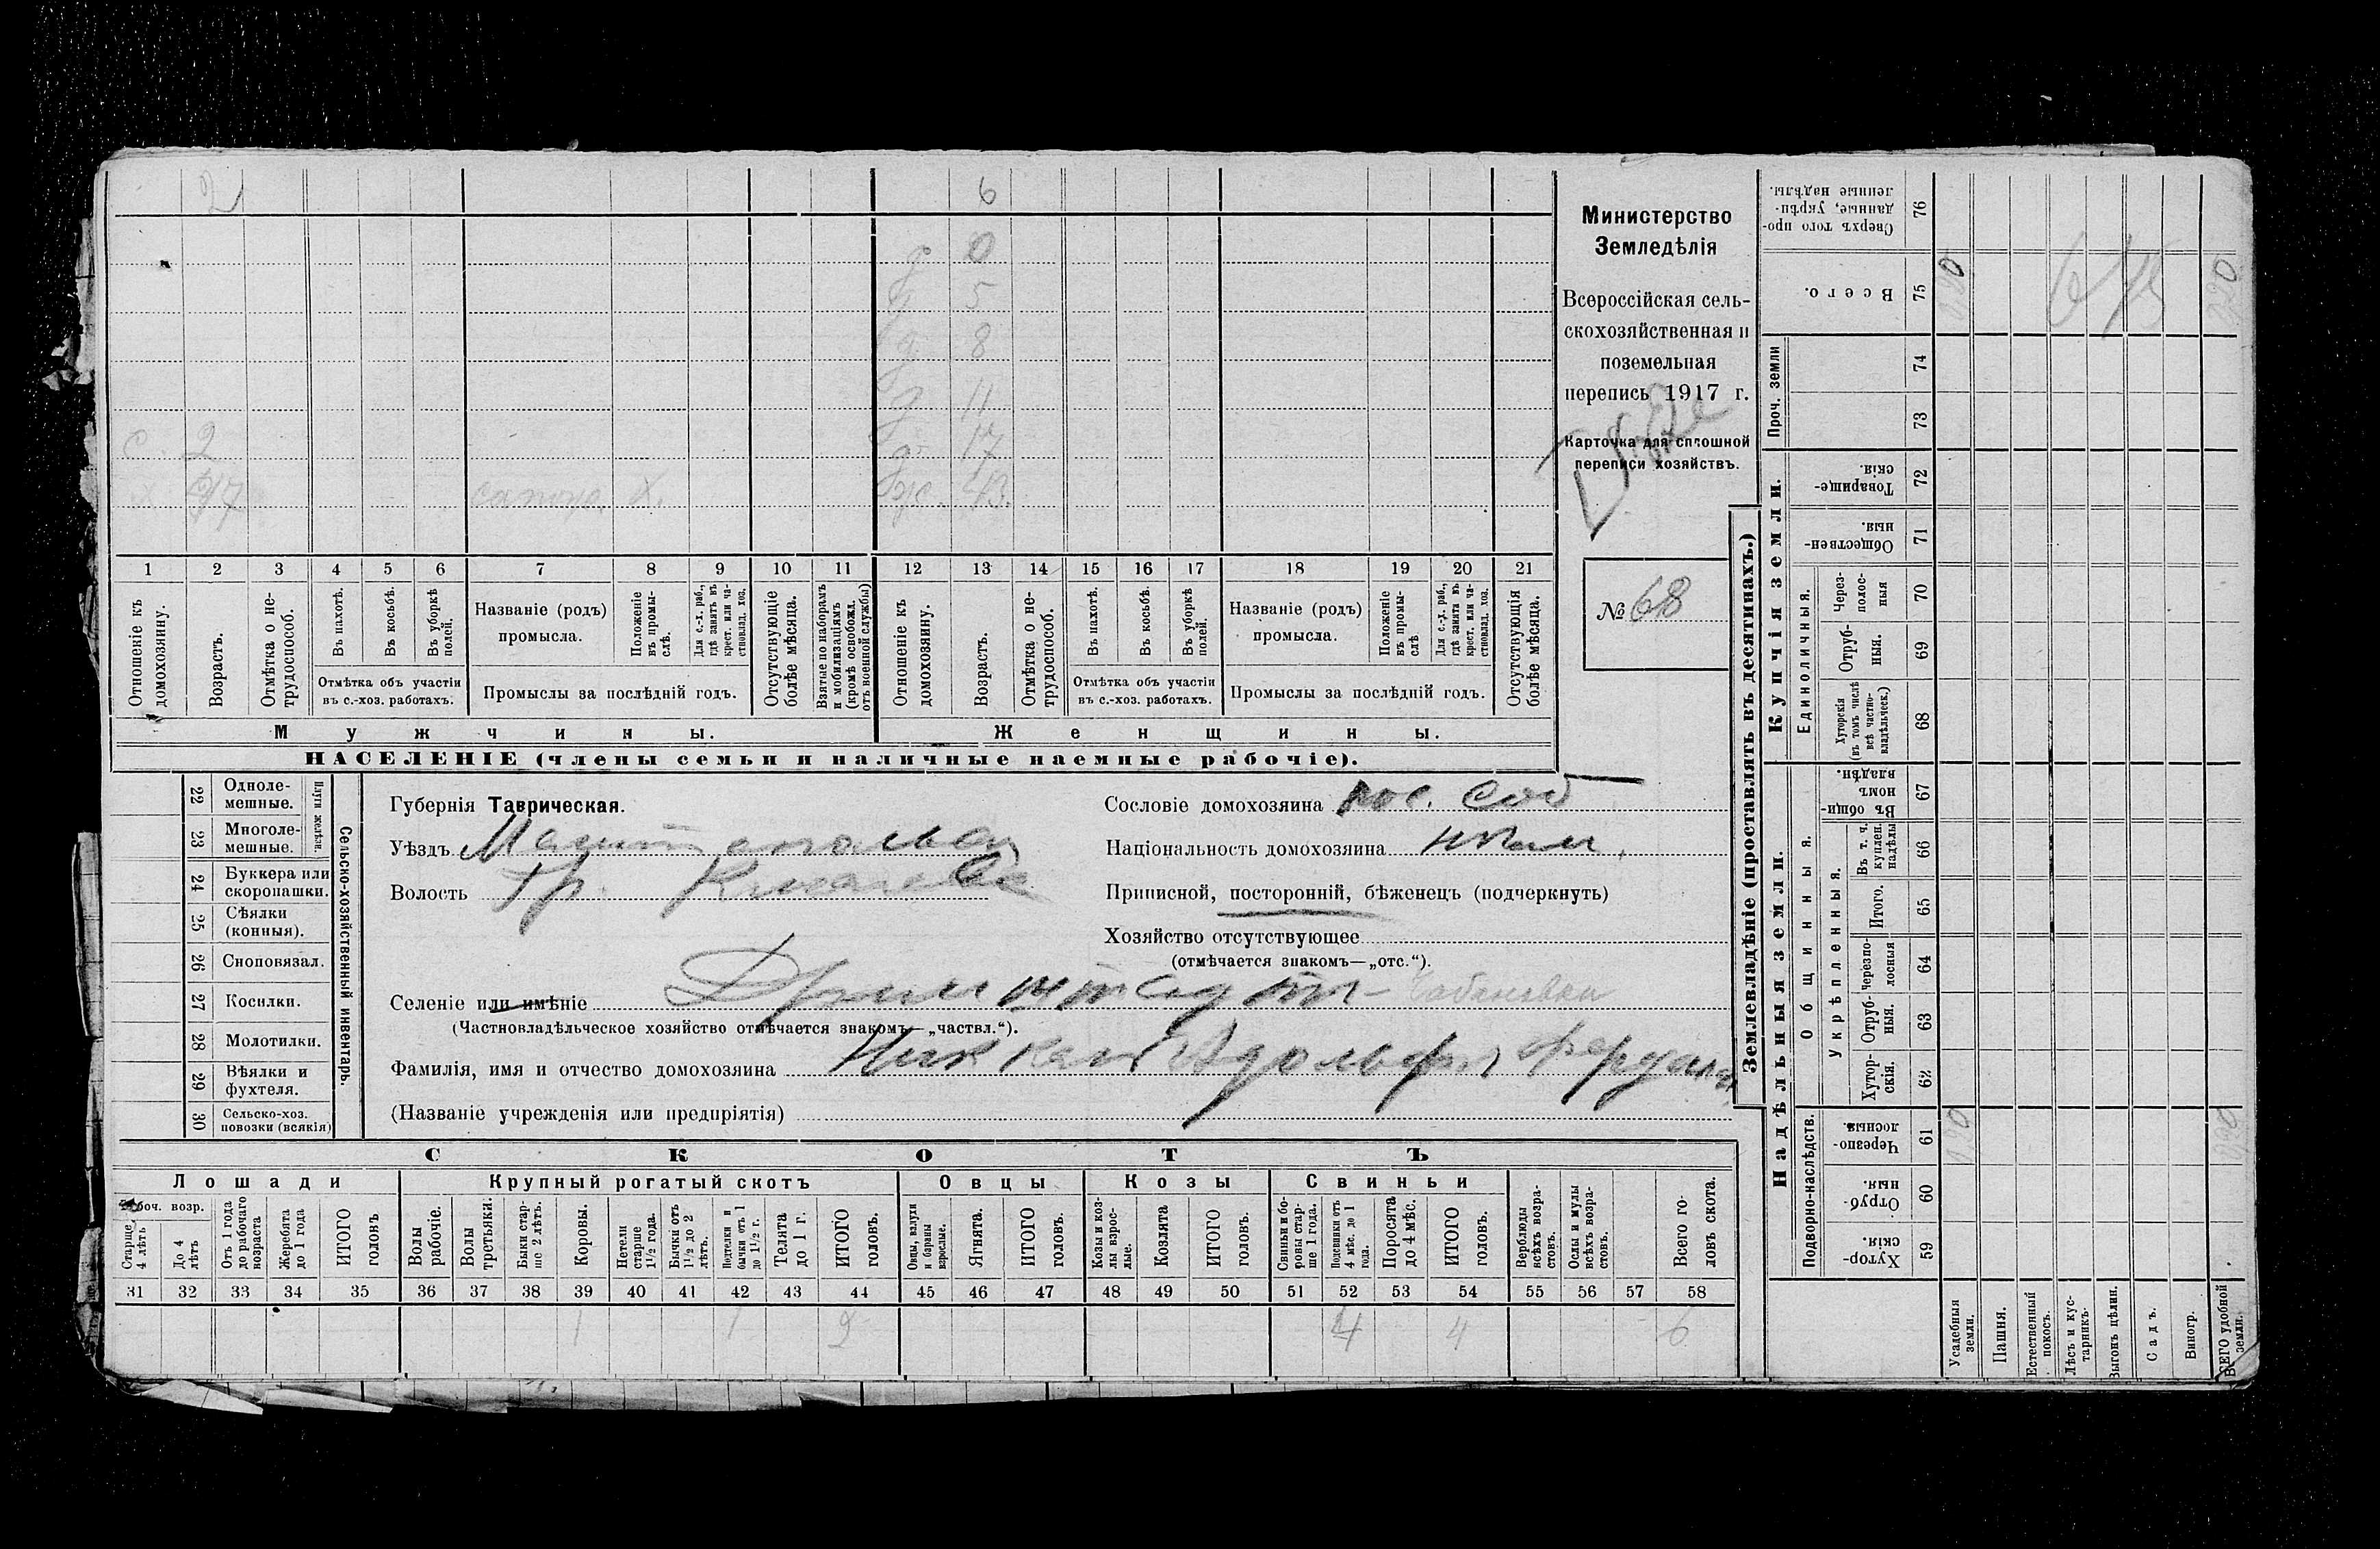 2 6
д 0
д 5
д 8
д 11
с. 2 д. 17
х 47 сапож. х. ж. 43.
1 2 3 4 5 6 7 8 9 10 11 12 13 14 15 16 17 18 19 20 21
Отношеніе къ домохозяину.
Возрастъ.
Отмѣтка о не-трудоспособ.
Въ пахотѣ.
Въ косьбѣ.
Въ уборкѣ полей.
Отмѣтка объ участіи въ с.-хоз. работахъ.
Названіе (родъ) промысла.
Положеніе въ промы-слѣ.
Для с.-х. раб., гдѣ занятъ въ крест. или ча-стновлад. хоз.
Промыслы за послѣдній годъ.
Отсутствующіе болѣе мѣсяца.
Взятые по наборамъ и мобилизаціямъ (кромѣ освобожд. отъ военной службы)
Отношеніе къ домохозяину.
Возрастъ.
Отмѣтка о не-трудоспособ.
Въ пахотѣ.
Въ косьбѣ.
Въ уборкѣ полей.
Отмѣтка объ участіи въ с.-хоз. работахъ.
Названіе (родъ) промысла.
Положеніе въ промы-слѣ
Для с.-х. раб., гдѣ занята въ крест. или ча-стновлад. хоз.
Промыслы за послѣдній годъ.
Отсутствующія болѣе мѣсяца.
Мужчины. Женщины.
НАСЕЛЕНІЕ (члены семьи и наличные наемные рабочіе).
Министерство
Земледѣлія
Всероссійская сель-
скохозяйственная и
поземельная
перепись 1917 г.
Карточка для сплошной
переписи хозяйствъ.
№ 68
Сельско-хозяйственный инвентарь.
Плуги желѣзн.
22 Одноле-мешные.
23 Многоле-мешные.
24 Буккера или скоропашки.
25 Сѣялки (конныя).
26 Сноповязал.
27 Косилки.
28 Молотилки.
29 Вѣялки и фухтеля.
30 Сельско-хоз. повозки (всякія)
Губернія Таврическая.
Уѣздъ
Волость
Селеніе или имѣніе
(Частновладѣльческое хозяйство отмѣчается знакомъ—„частвл.“).
Фамилія, имя и отчество домохозяина Адольфъ
(Названіе учрежденія или предпріятія)
Сословіе домохозяина пос. соб
Національность домохозяина нѣм.
Приписной, посторонній, бѣженецъ (подчеркнуть)
Хозяйство отсутствующее
(отмѣчается знакомъ—„отс.“).
СКОТЪ
Лошади Крупный рогатый скотъ Овцы Козы Свиньи
Рабоч. возр.
Старше 4 лѣтъ
До 4 лѣтъ
Отъ 1 года до рабочаго возраста
Жеребята до 1 года
ИТОГО головъ
Волы рабочіе.
Волы третьяки.
Быки стар-ше 2 лѣтъ.
Коровы.
Нетели старше 1½ года.
Бычки отъ 1½ до 2 лѣтъ.
Подтелки и бычки отъ 1 до 1½ г.
Телята до 1 г.
ИТОГО головъ.
Овцы, валухи и бараны взрослые.
Ягнята.
ИТОГО головъ.
Козы и коз-лы взрос-лые.
Козлята
ИТОГО головъ.
Свиньи и бо-ровы стар-ше 1 года.
Подсвинки отъ 4 мѣс. до 1 года.
Поросята до 4 мѣс.
ИТОГО головъ.
Верблюды всѣхъ возра-стовъ.
Ослы и мулы всѣхъ возра-стовъ.
Всего го-ловъ скота.
31 32 33 34 35 36 37 38 39 40 41 42 43 44 45 46 47 48 49 50 51 52 53 54 55 56 57 58
1 1 2 4 4 6
Землевладѣніе (проставлять въ десятинахъ.)
Надѣльныя земли. Купчія земли.
Проч. земли
Подворно-наслѣдств.
Общинныя.
Укрѣпленныя.
Единоличныя.
Хутор-скія. 59
Отруб-ныя. 60
Черезпо-лосныя. 61
Хутор-скія. 62
Отруб-ныя. 63
Черезпо-лосныя 64
Итого. 65
Въ т. ч. куплен. надѣлы 66
Въ общи-номъ владѣн. 67
Хуторскія (въ томъ числѣ всѣ частно-владѣльческ.) 68
Отруб-ныя. 69
Через-полос-ныя 70
Обществен-ныя. 71
Товарище-скія. 72
73
74
Всего. 75
Сверхъ того про-данные, укрѣп-ленные надѣлы. 76
Усадебныя земли.
Пашня.
Естественный покосъ.
Лѣсъ и кус-тарникъ.
Выгонъ цѣлин.
Садъ.
Виногр.
ВСЕГО удобной земли.